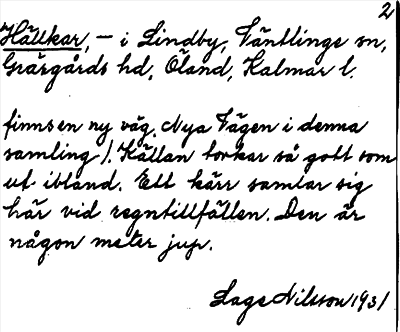 2
Hällkar, - i Lindby, Väntlinge sn,
Gräsgårds hd, Öland, Kalmar l.
finns en ny väg, Nya Vägen i denna
samling). Källan torkar så gott som
ut ibland. Ett kärr samlar sig
här vid regntillfällen. Den är
någon meter jup.
Lage Nilsson 1931